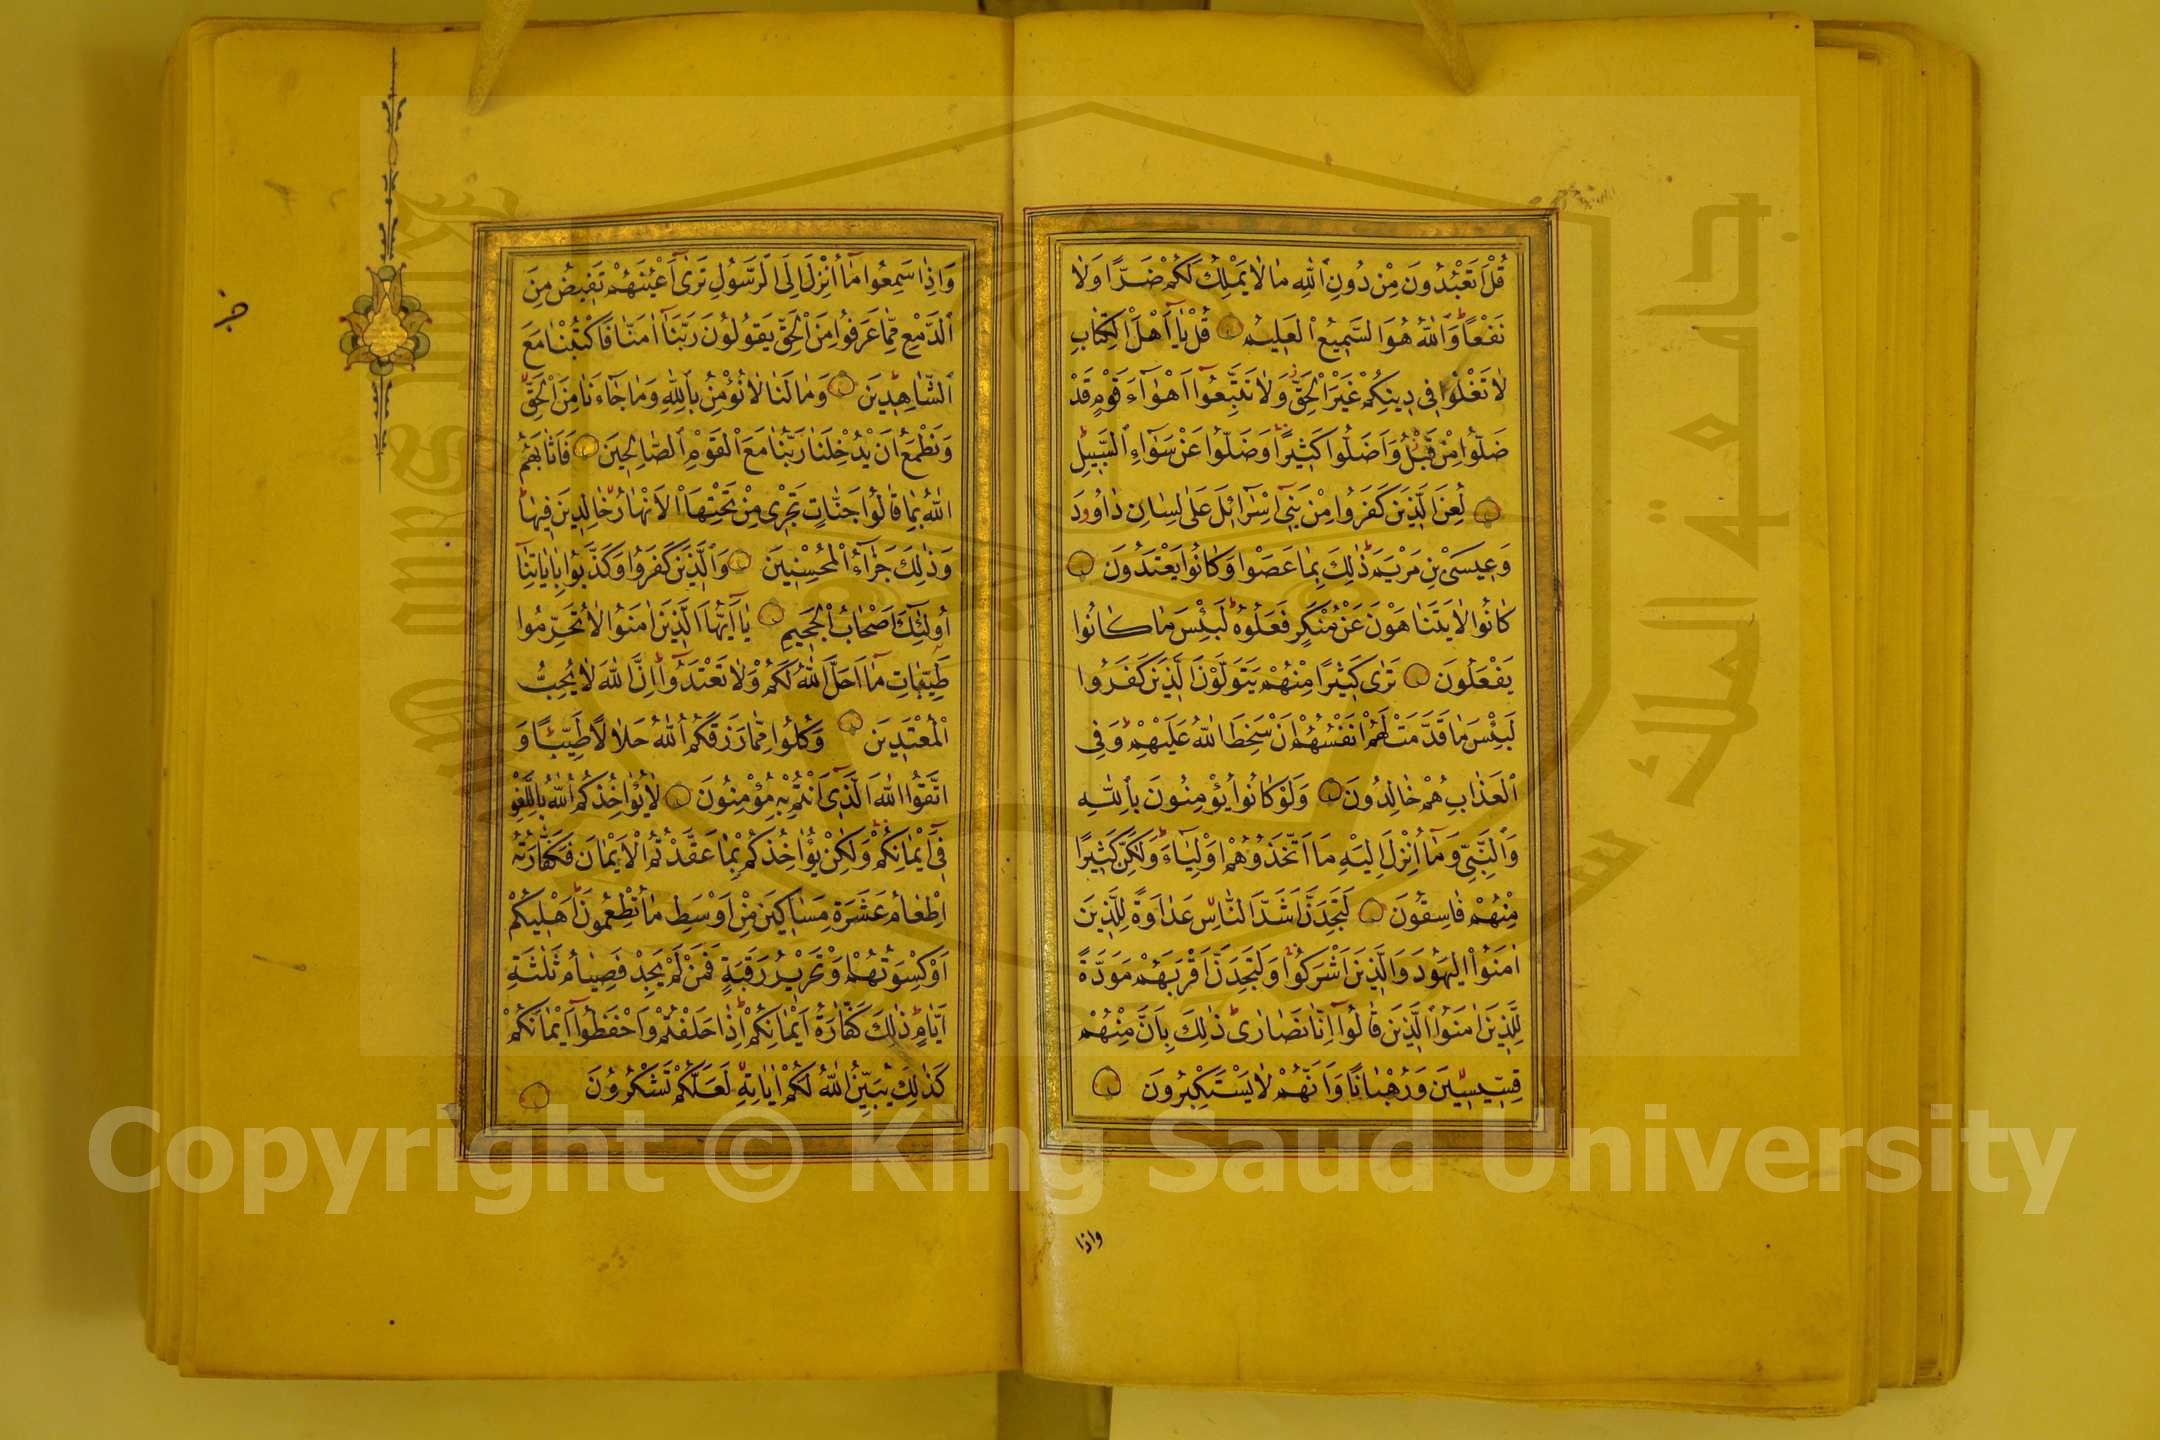 قُلْ اَتَعْبُدُونَ مِنْ دُونِ اللّٰهِ مَا لَا يَمْلِكُ لَكُمْ ضَرًّا وَلَا
نَفْعًا وَاللّٰهُ هُوَ السَّمِيعُ الْعَلِيمُ قُلْ يَا اَهْلَ الْكِتَابِ
لَا تَغْلُوا فِى دِينِكُمْ غَيْرَ الْحَقِّ وَلَا تَتَّبِعُوا اَهْوَاءَ قَوْمٍ قَدْ
ضَلُّوا مِنْ قَبْلُ وَاَضَلُّوا كَثِيرًا وَضَلُّوا عَنْ سَوَاءِ السَّبِيلِ
لُعِنَ الَّذِينَ كَفَرُوا مِنْ بَنِى اِسْرَائِلَ عَلٰى لِسَانِ دَاوُودَ
وَعِيسَى بْنِ مَرْيَمَ ذٰلِكَ بِمَا عَصَوْا وَكَانُوا يَعْتَدُونَ
كَانُوا لَا يَتَنَاهَوْنَ عَنْ مُنْكَرٍ فَعَلُوهُ لَبِئْسَ مَا كَانُوا
يَفْعَلُونَ تَرٰى كَثِيرًا مِنْهُمْ يَتَوَلَّوْنَ الَّذِينَ كَفَرُوا
لَبِئْسَ مَا قَدَّمَتْ لَهُمْ اَنْفُسُهُمْ اَنْ سَخِطَ اللّٰهُ عَلَيْهِمْ وَفِى
الْعَذَابِ هُمْ خَالِدُونَ وَلَوْ كَانُوا يُؤْمِنُونَ بِاللّٰهِ
وَالنَّبِىِّ وَمَا اُنْزِلَ اِلَيْهِ مَا اتَّخَذُوهُمْ اَوْلِيَاءَ وَلٰكِنَّ كَثِيرًا
مِنْهُمْ فَاسِقُونَ لَتَجِدَنَّ اَشَدَّ النَّاسِ عَدَاوَةً لِلَّذِينَ
اٰمَنُوا الْيَهُودَ وَالَّذِينَ اَشْرَكُوا وَلَتَجِدَنَّ اَقْرَبَهُمْ مَوَدَّةً
لِلَّذِينَ اٰمَنُوا الَّذِينَ قَالُوا اِنَّا نَصَارٰى ذٰلِكَ بِاَنَّ مِنْهُمْ
قِسِّيسِينَ وَرُهْبَانًا وَاَنَّهُمْ لَا يَسْتَكْبِرُونَ
واذا
وَاِذَا سَمِعُوا مَا اُنْزِلَ اِلَى الرَّسُولِ تَرٰى اَعْيُنَهُمْ تَفِيضُ مِنَ
الدَّمْعِ مِمَّا عَرَفُوا مِنَ الْحَقِّ يَقُولُونَ رَبَّنَا اٰمَنَّا فَاكْتُبْنَا مَعَ
الشَّاهِدِينَ وَمَا لَنَا لَا نُؤْمِنُ بِاللّٰهِ وَمَا جَاءَنَا مِنَ الْحَقِّ
وَنَطْمَعُ اَنْ يُدْخِلَنَا رَبُّنَا مَعَ الْقَوْمِ الصَّالِحِينَ فَاَثَابَهُمُ
اللّٰهُ بِمَا قَالُوا جَنَّاتٍ تَجْرِى مِنْ تَحْتِهَا الْاَنْهَارُ خَالِدِينَ فِيهَا
وَذٰلِكَ جَزَاءُ الْمُحْسِنِينَ وَالَّذِينَ كَفَرُوا وَكَذَّبُوا بِاٰيَاتِنَا
اُولٰئِكَ اَصْحَابُ الْجَحِيمِ يَا اَيُّهَا الَّذِينَ اٰمَنُوا لَا تُحَرِّمُوا
طَيِّبَاتِ مَا اَحَلَّ اللّٰهُ لَكُمْ وَلَا تَعْتَدُوا اِنَّ اللّٰهَ لَا يُحِبُّ
الْمُعْتَدِينَ وَكُلُوا مِمَّا رَزَقَكُمُ اللّٰهُ حَلَالًا طَيِّبًا وَ
اتَّقُوا اللّٰهَ الَّذِى اَنْتُمْ بِهِ مُؤْمِنُونَ لَا يُؤَاخِذُكُمُ اللّٰهُ بِاللَّغْوِ
فِى اَيْمَانِكُمْ وَلٰكِنْ يُؤَاخِذُكُمْ بِمَا عَقَّدْتُمُ الْاَيْمَانَ فَكَفَّارَتُهُ
اِطْعَامُ عَشَرَةِ مَسَاكِينَ مِنْ اَوْسَطِ مَا تُطْعِمُونَ اَهْلِيكُمْ
اَوْ كِسْوَتُهُمْ اَوْ تَحْرِيرُ رَقَبَةٍ فَمَنْ لَمْ يَجِدْ فَصِيَامُ ثَلٰثَةِ
اَيَّامٍ ذٰلِكَ كَفَّارَةُ اَيْمَانِكُمْ اِذَا حَلَفْتُمْ وَاحْفَظُوا اَيْمَانَكُمْ
كَذٰلِكَ يُبَيِّنُ اللّٰهُ لَكُمْ اٰيَاتِهِ لَعَلَّكُمْ تَشْكُرُونَ
Copyright © King Saud University
جامعة الملك سعود
King Saud University